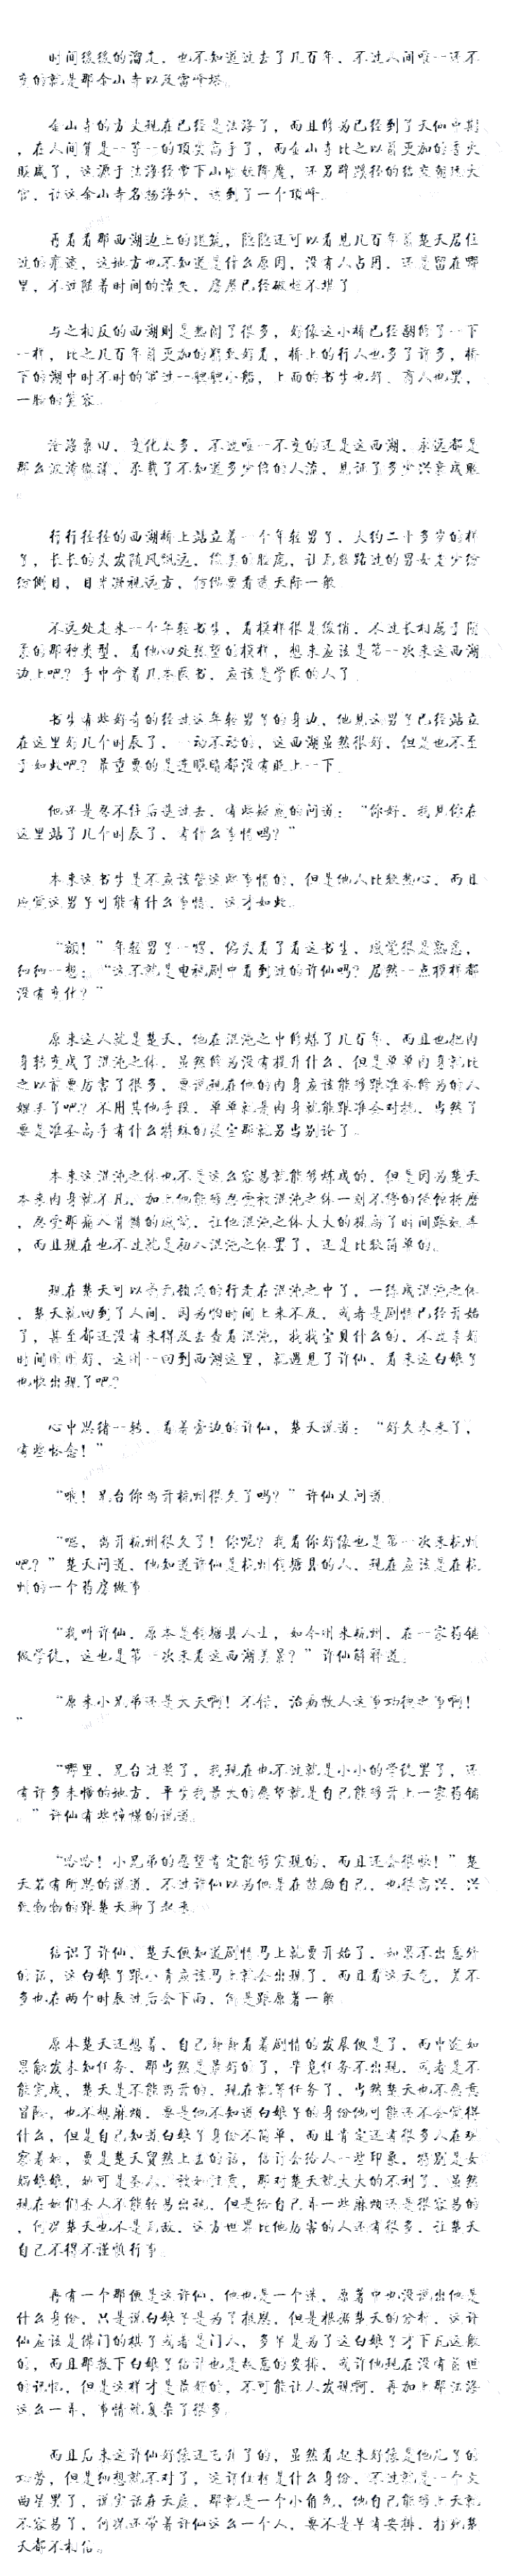 时间缓缓的溜走，也不知道过去了几百年，不过人间唯一还不
变的就是那金山寺以及雷峰塔。
金山寺的方丈现在已经是法海了，而且修为已经到了天仙中期
，在人间算是一等一的顶尖高手了，而金山寺比之以前更加的香火
旺盛了，这源于法海经常下山除妖降魔，还另辟蹊径的结交朝廷大
官，让这金山寺名扬海外，达到了一个顶峰。
再看看那西湖边上的建筑，隐隐还可以看见几百年前楚天居住
过的痕迹，这地方也不知道是什么原因，没有人占用，还是留在哪
里，不过随着时间的流失，房屋已经破烂不堪了。
与之相反的西湖则是热闹了很多，好像这小桥已经翻修了一下
一样，比之几百年前更加的精致好看，桥上的行人也多了许多，桥
下的湖中时不时的穿过一艘艘小船，上面的书生也好，商人也罢，
一脸的笑容。
沧海桑田，变化太多，不过唯一不变的还是这西湖，永远都是
那么波涛微漾，承载了不知道多少倍的人流，见证了多少兴衰成败
。
行行径径的西湖桥上站立着一个年轻男子，大约二十多岁的样
子，长长的头发随风飘远，俊美的脸庞，让无数路过的男女老少纷
纷侧目，目光凝视远方，仿佛要看透天际一般
不远处走来一个年轻书生，看模样很是俊俏，不过长相属于阴
柔的那种类型，看他四处张望的模样，想来应该是第一次来这西湖
边上吧？手中拿着几本医书，应该是学医的人了。
书生有些好奇的经过这年轻男子的身边，他见这男子已经站立
在这里好几个时辰了，一动不动的，这西湖虽然很好，但是也不至
于如此吧？最重要的是连眼睛都没有眨上一下。
他还是忍不住后退过去，有些疑惑的问道：“你好，我见你在
这里站了几个时辰了，有什么事情吗？”
本来这书生是不应该管这些事情的，但是他人比较热心，而且
感觉这男子可能有什么事情，这才如此。
“额！”年轻男子一愣，偏头看了看这书生，感觉很是熟悉，
细细一想：“这不就是电视剧中看到过的许仙吗？居然一点模样都
没有变化？”
原来这人就是楚天，他在混沌之中修炼了几百年，而且也把肉
身转变成了混沌之体，虽然修为没有提升什么，但是单单肉身就比
之以前要厉害了很多，要说现在他的肉身应该能够跟准圣修为的人
媲美了吧？不用其他手段，单单就是肉身就能跟准圣对抗，当然了
要是准圣高手有什么特殊的灵宝那就另当别论了。
本来这混沌之体也不是这么容易就能够炼成的，但是因为楚天
本来肉身就不凡，加上他能够忍受被混沌之体一刻不停的侵蚀折磨
，忍受那痛入骨髓的感觉，让他混沌之体大大的提高了时间跟效率
，而且现在也不过就是初入混沌之体罢了，还是比较简单的。
现在楚天可以毫无顾忌的行走在混沌之中了，一练成混沌之体
，楚天就回到了人间，因为怕时间上来不及，或者是剧情已经开始
了，甚至都还没有来得及去查看混沌，找找宝贝什么的，不过幸好
时间刚刚好，这刚一回到西湖这里，就遇见了许仙，看来这白娘子
也快出现了吧？
心中思绪一转，看着旁边的许仙，楚天说道：“好久未来了，
有些怀念！”
“哦！兄台你离开杭州很久了吗？”许仙又问道
“嗯，离开杭州很久了！你呢？我看你好像也是第一次来杭州
吧？”楚天问道，他知道许仙是杭州钱塘县的人，现在应该是在杭
州的一个药房做事
“我叫许仙，原本是钱塘县人士，如今刚来杭州，在一家药铺
做学徒，这也是第一次来看这西湖美景？”许仙解释道。
“原来小兄弟还是大夫啊！不错，治病救人这事功德之事啊！
”
“哪里，兄台过誉了，我现在也不过就是小小的学徒罢了，还
有许多未懂的地方，平生我最大的愿望就是自己能够开上一家药铺
。”许仙有些憧憬的说道。
“哈哈！小兄弟的愿望肯定能够实现的，而且还会很快！”楚
天若有所思的说道，不过许仙以为他是在鼓励自己，也很高兴，兴
致勃勃的跟楚天聊了起来。
结识了许仙，楚天便知道剧情马上就要开始了，如果不出意外
的话，这白娘子跟小青应该马上就会出现了，而且看这天色，差不
多也在两个时辰过后会下雨，倒是跟原著一般
原本楚天还想着，自己静静看着剧情的发展便是了，而中途如
果能发未知任务，那当然是最好的了，毕竟任务不出现，或者是不
能完成，楚天是不能离开的，现在就等任务了，当然楚天也不愿意
冒险，也不想麻烦，要是他不知道白娘子的身份他可能还不会觉得
什么，但是自己知道白娘子身份不简单，而且肯定还有很多人在观
察着她，要是楚天贸然上去的话，估计会给人一些印象，特别是女
娲娘娘，她可是圣人，被她注意，那对楚天就大大的不利了，虽然
现在她们圣人不能轻易出现，但是给自己弄一些麻烦还是很容易的
，何况楚天也不是无敌，这方世界比他厉害的人还有很多，让楚天
自己不得不谨慎行事。
再有一个那便是这许仙，他也是一个迷，原著中也没说出他是
什么身份，只是说白娘子是为了报恩，但是根据楚天的分析，这许
仙应该是佛门的棋子或者是门人，多半是为了这白娘子才下凡这般
的，而且那救下白娘子估计也是故意的安排，或许他现在没有前世
的记忆，但是这样才是最好的，不可能让人发现啊，再加上那法海
这么一弄，事情就复杂了很多。
而且后来这许仙好像还飞升了的，虽然看起来好像是他儿子的
功劳，但是细想就不对了，这许仕林是什么身份，不过就是一个文
曲星罢了，说实话在天庭，那就是一个小角色，他自己能够升天就
不容易了，何况还带着许仙这么一个人，要不是早有安排，打死楚
天都不相信。